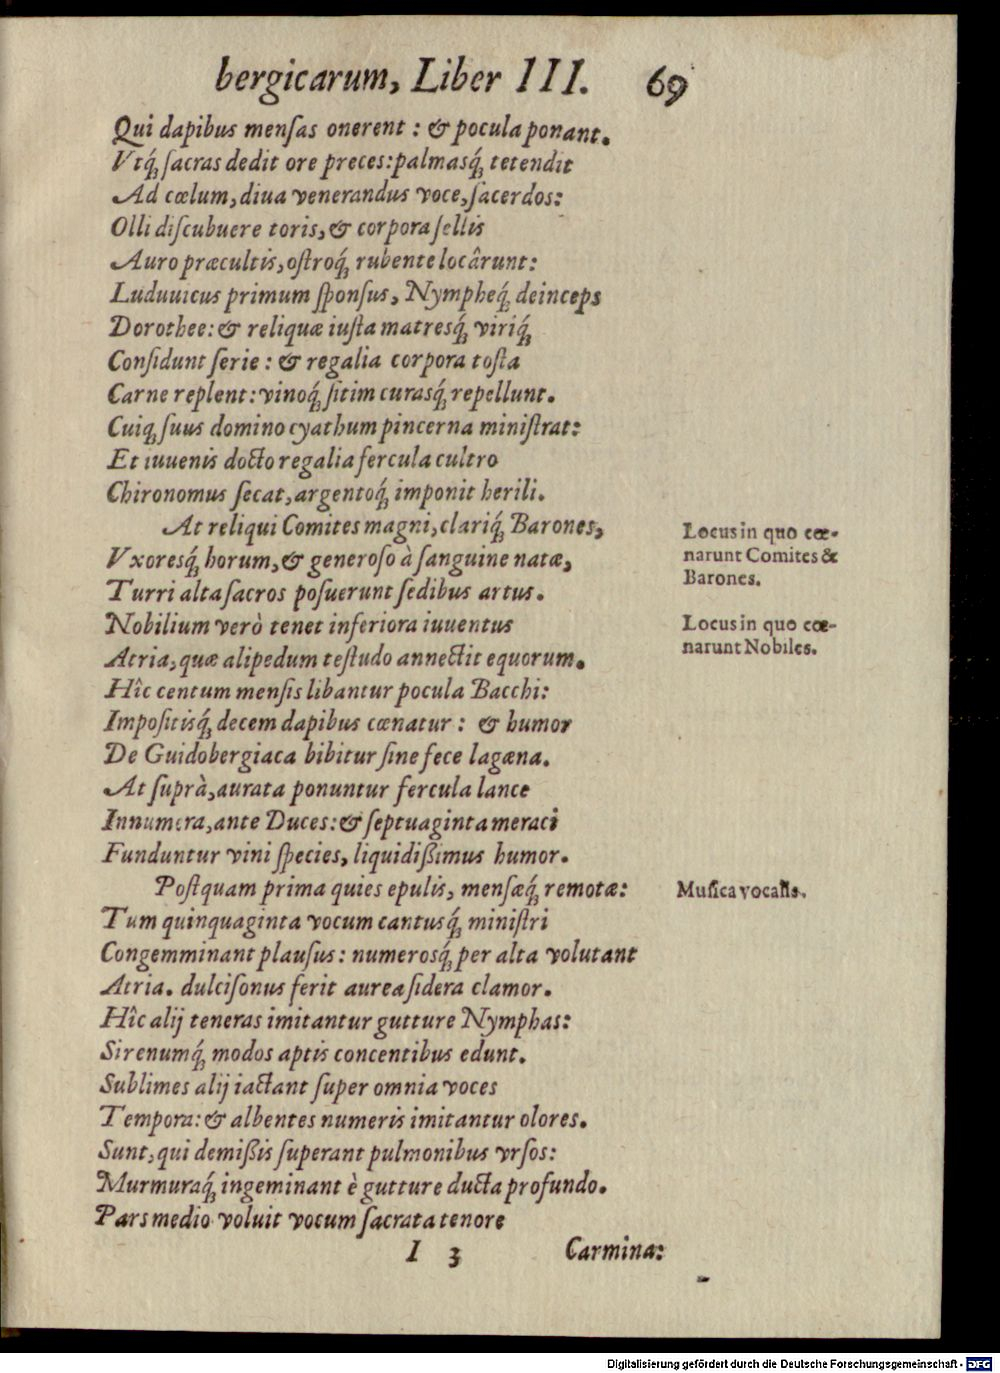 bergicarum, Liber III. 69
Qui dapibus mensas onerent: & pocula ponant.
Vtq́ꝫ sacras dedit ore preces: palmasq́ꝫ tetendit
Ad cœlum, diua venerandus voce, sacerdos:
Olli discubuere toris, & corpora sellis
Auro præcultis, ostroq́ꝫ rubente locârunt:
Luduuicus primum sponsus, Nympheq́ꝫ deinceps
Dorothee: & reliquæ iusta matresq́ꝫ viriq́ꝫ
Considunt serie: & regalia corpora tosta
Carne replent: vinoq́ꝫ sitim curasq́ꝫ repellunt.
Cuiqꝫ suus domino cyathum pincerna ministrat:
Et iuuenis docto regalia fercula cultro
Chironomus secat, argentoq́ꝫ imponit herili.
At reliqui Comites magni, clariq́ꝫ Barones,
Vxoresq́ꝫ horum, & generoso à sanguine natæ,
Turri alta sacros posuerunt sedibus artus.
Nobilium verò tenet inferiora iuuentus
Atria, quæ alipedum testudo annectit equorum.
Hîc centum mensis libantur pocula Bacchi:
Impositisq́ꝫ decem dapibus cœnatur: & humor
De Guidobergiaca bibitur sine fece lagæna.
At suprà, aurata ponuntur fercula lance
Innumera, ante Duces: & septuaginta meraci
Funduntur vini species, liquidißimus humor.
Postquam prima quies epulis, mensæq́ꝫ remotæ:
Tum quinquaginta vocum cantusq́ꝫ ministri
Congemminant plausus: numerosq́ꝫ per alta volutant
Atria. dulcisonus ferit aurea sidera clamor.
Hîc alij teneras imitantur gutture Nymphas:
Sirenumq́ꝫ modos aptis concentibus edunt.
Sublimes alij iactant super omnia voces
Tempora: & albentes numeris imitantur olores.
Sunt, qui demißis superant pulmonibus vrsos:
Murmuraq́ꝫ ingeminant è gutture ducta profundo.
Pars medio voluit vocum sacrata tenore
I 3 Carmina:
Locus in quo cœ-
narunt Comites &
Barones.
Locus in quo cœ-
narunt Nobiles.
Musica vocalis.
Digitalisierung gefördert durch die Deutsche Forschungsgemeinschaft - DFG